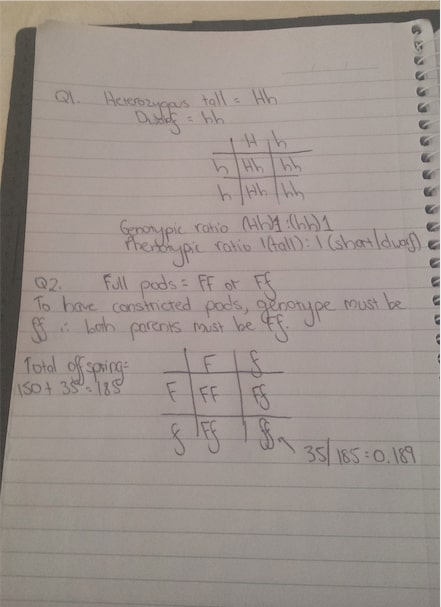 Q1. Heterozygous tall = Hh
Dwarf = hh
H h
h Hh hh
h Hh hh
Genotypic ratio (Hh)1:(hh)1
Phenotypic ratio 1(tall): 1 (short/dwarf)
Q2. Full pods = FF or Ff
To have constricted pods, genotype must be
ff ∴ both parents must be Ff.
Total offspring=
150+ 35 = 185
F f
F FF Ff
f Ff ff
35/185=0.189